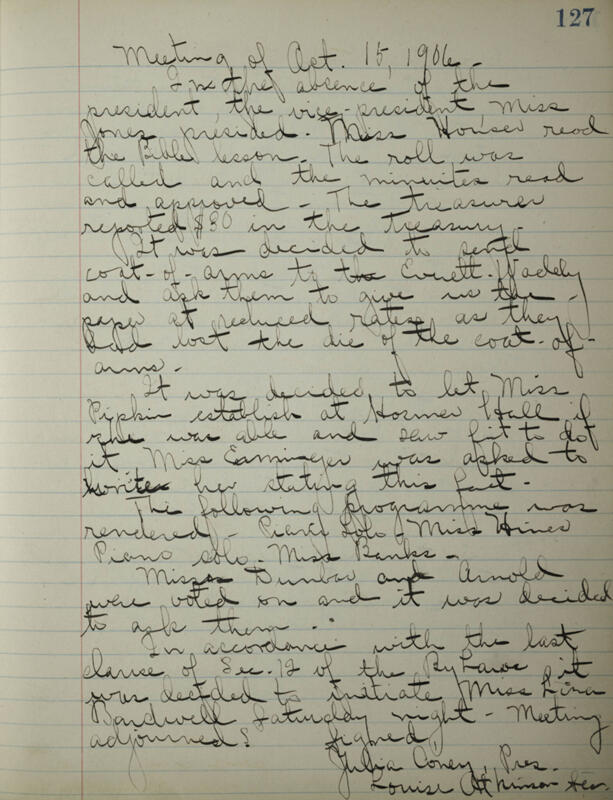 127
Meeting of Oct. 15, 1906.
In the absence of the
president, the vice-president Miss
Jones presided. Miss Houser read
the Bible lesson. The roll was
called and the minuites read
and approved - The treasurer
reported $30 in the treasury.
It was decided to send
coat-of-arms to Everett-Waddey
and ask them to give us the
paper at reduced rates as they
had lost the die of the coat-of-
arms -
It was decided to let Miss
Pipkin establish at Hosmer Hall if
she was able and saw fit to do
it. Miss was asked to
write her stating this fact -
The following programme was
rendered - Piano Solo - Miss Hines
Piano solo - Miss Banks -
Misses Dunbar and Arnold
were voted on and it was decided
to ask them.
In accordance with the last
clause of Sec. 12 of the By Laws it
was decided to initiate Miss
Bardwell Saturday night - Meeting
adjourned. Signed,
Julia Coney, Pres.
Louise Atkinson Sec.